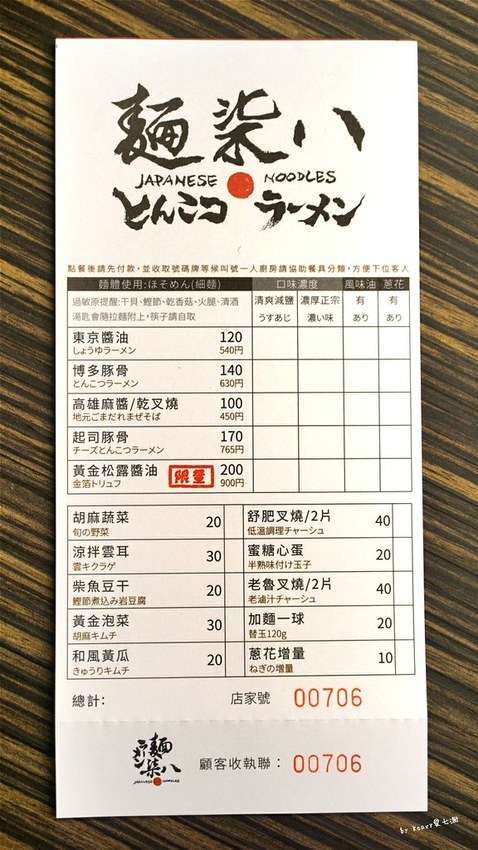 麵柒八
JAPANESE NOODLES
とんこつ ラーメン
點餐後請先付款,並收取號碼牌等候叫號一人廚房請協助餐具分類,方便下位客人
麵體使用:ほそめん(細麵) 口味濃度 風味油 蔥花
過敏原提醒:干貝、鰹節、乾香菇、火腿、清酒 清爽減鹽 濃厚正宗 有 有
湯匙會隨拉麵附上,筷子請自取 うすあじ 濃い味 あり あり
東京醬油 120
しょうゆラーメン 540円
博多豚骨 140
とんこつラーメン 630円
高雄麻醬/乾叉燒 100
地元ごまだれまぜそば 450円
起司豚骨 170
チーズとんこつラーメン 765円
黃金松露醬油 限量 200
金箔トリュフ 900円
胡麻蔬菜 20 舒肥叉燒/2片 40
旬の野菜 低溫調理チャーシュ
涼拌雲耳 30 蜜糖心蛋 20
雲キクラゲ 半熟味付け玉子
柴魚豆干 20 老魯叉燒/2片 40
鰹節煮込み岩豆腐 老滷汁チャーシュ
黃金泡菜 30 加麵一球 20
胡麻キムチ 替玉120g
和風黃瓜 20 蔥花增量 10
きゅうりキムチ ねぎの増量
總計: 店家號 00706
麵柒八
ラーメン
顧客收執聯: 00706